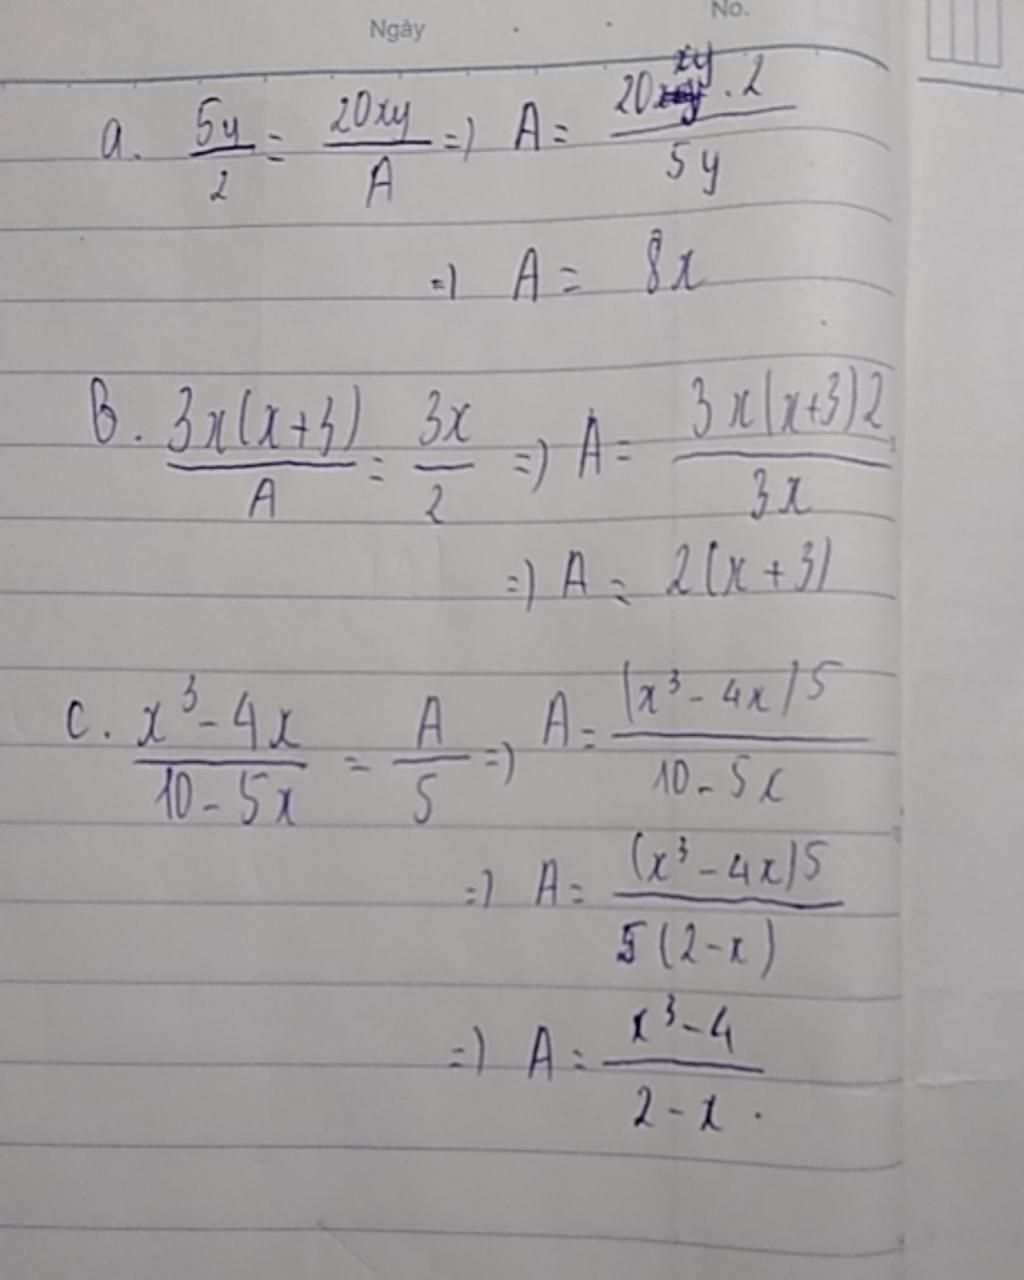 Ngày No.
a. \frac{5y}{2} = \frac{20xy}{A} => A = \frac{20xy . 2}{5y}
=> A = 8x
b. \frac{3x(x+3)}{A} = \frac{3x}{2} => A = \frac{3x(x+3)2}{3x}
=> A = 2(x+3)
c. \frac{x^3-4x}{10-5x} = \frac{A}{5} => A = \frac{(x^3-4x)5}{10-5x}
=> A = \frac{(x^3-4x)5}{5(2-x)}
=> A = \frac{x^3-4}{2-x}.